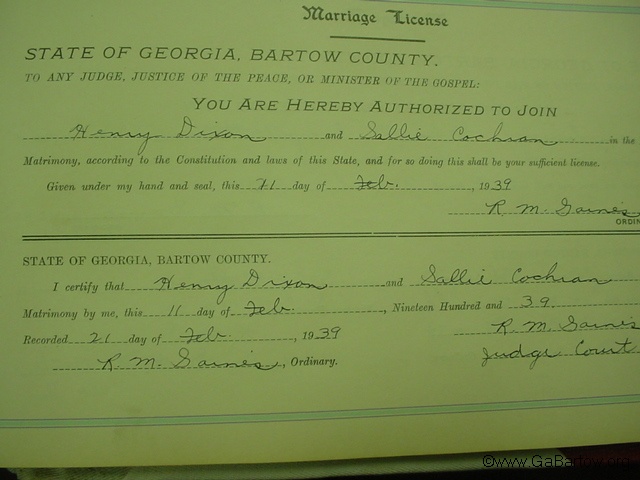 Marriage License
STATE OF GEORGIA, BARTOW COUNTY.
TO ANY JUDGE, JUSTICE OF THE PEACE, OR MINISTER OF THE GOSPEL:
YOU ARE HEREBY AUTHORIZED TO JOIN
Henry Dixon and Sallie Cochran in the
Matrimony, according to the Constitution and laws of this State, and for so doing this shall be your sufficient license.
Given under my hand and seal, this day of Feb. , 1939
R. M. Gaines
ORDIN
STATE OF GEORGIA, BARTOW COUNTY.
I certify that Henry Dixon and Sallie Cochran
Matrimony by me, this 11 day of Feb. , Nineteen Hundred and 39
Recorded 21 day of Feb. , 1939 R. M. Gaines
R. M. Gaines, Ordinary. Judge Court
©www.GaBartow.org